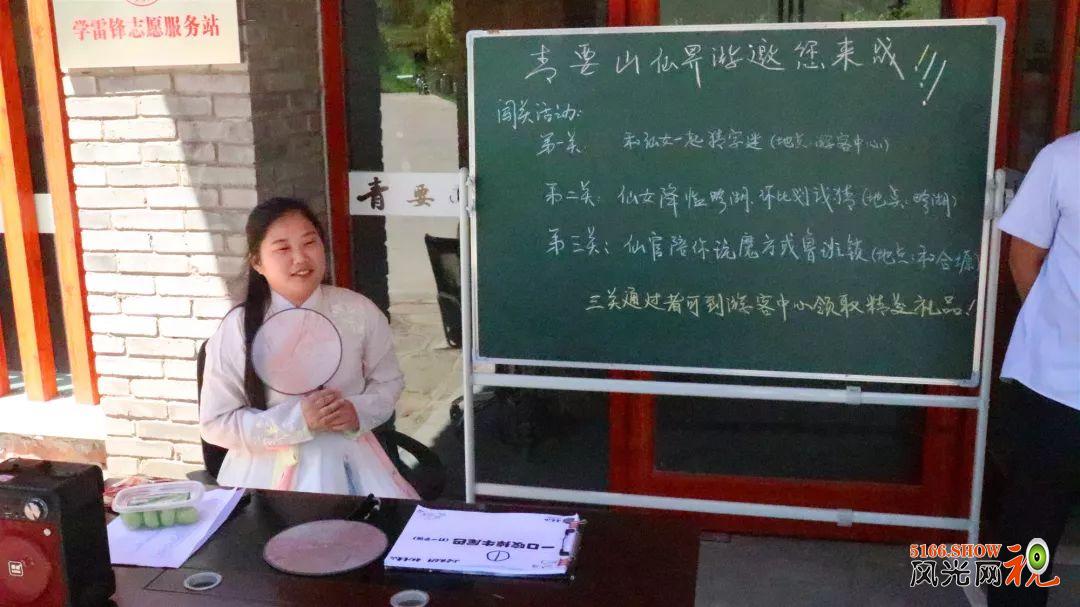 学雷锋志愿服务站
青要山仙界游邀您来战!!!
闯关活动:
第一关: 和仙女一起猜字迷(地点:游客中心)
第二关: 仙女降临畛湖,你比划我猜(地点:畛湖)
第三关: 仙官陪你玩魔方或鲁班锁(地点:和合塬)
三关通过者可到游客中心领取精美礼品!
青要
一口咬掉牛尾巴(打一字)
5166.SHOW
风光网视